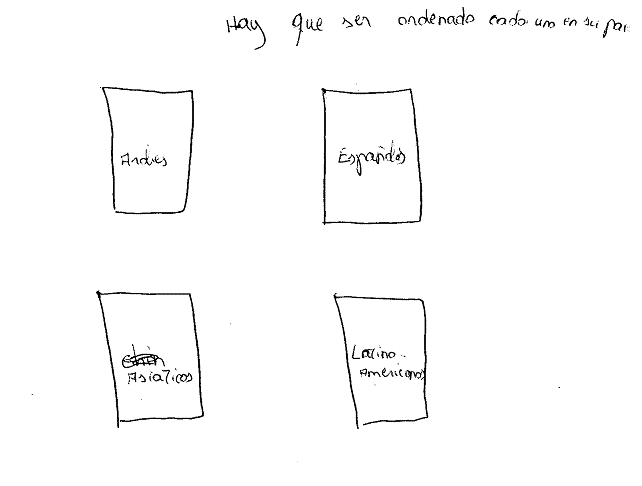 Hay que ser ordenado cada uno en su pais
Españoles
Asiaticos
Latino
Americanos